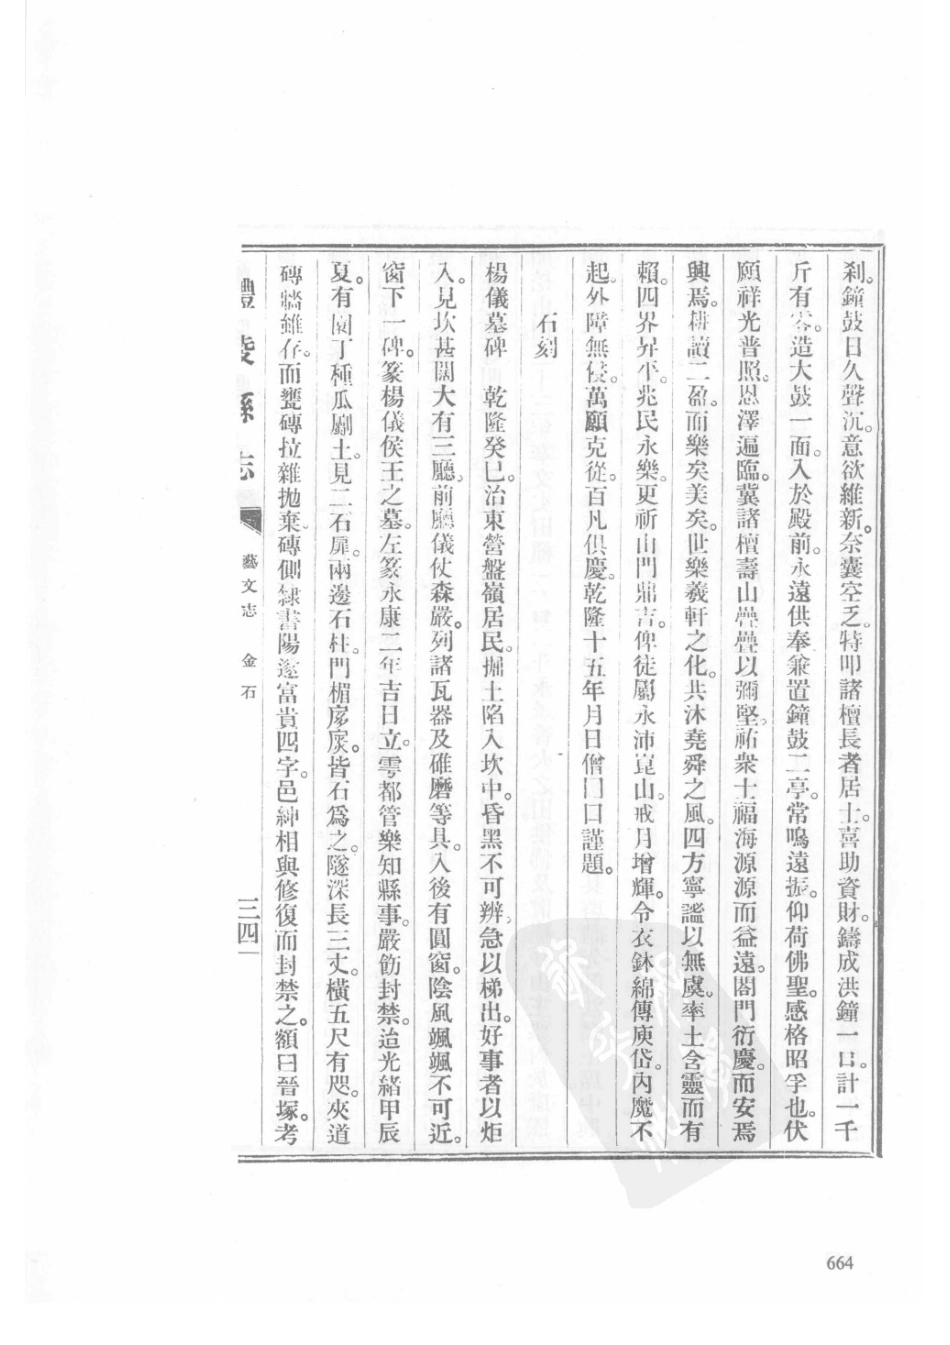 剎。鐘鼓日久聲沉。意欲維新。奈囊空乏。特叩諸檀長者居士。喜助資財。鑄成洪鐘一口。計一千
斤有零。造大鼓一面。入於殿前。永遠供奉兼置鐘鼓二亭。常鳴遠振。仰荷佛聖。感格昭孚也。伏
願祥光普照。恩澤遍臨。冀諸檀壽山疊疊以彌堅。祐衆士福海源源而益遠。閤門衍慶。而安焉
興焉。耕讀二盈。而樂矣美矣。世樂羲軒之化。共沐堯舜之風。四方寧謐以無虞。率土含靈而有
賴。四界昇平。兆民永樂。更祈山門鼎吉。俾徒屬永沛崑山。戒月增輝。令衣鉢綿傳庾岱。內魔不
起。外障無侵。萬願克從。百凡俱慶。乾隆十五年月日僧囗囗謹題。
石刻
楊儀墓碑　乾隆癸巳。治東營盤嶺居民。掘土陷入坎中。昏黑不可辨。急以梯出。好事者以炬
入。見坎甚闊大有三廳。前廳儀仗森嚴。列諸瓦器及碓磨等具。入後有圓窗。陰風颯颯不可近。
窗下一碑。篆楊儀侯王之墓。左篆永康二年吉日立。雩都管樂知縣事。嚴飭封禁。迨光緒甲辰
夏。有園丁種瓜劚土。見二石扉。兩邊石柱。門楣扅扊。皆石爲之。隧深長三丈。橫五尺有咫。夾道
磚牆雖存。而甃磚拉雜拋棄。磚側隸書陽邃富貴四字。邑紳相與修復而封禁之。額曰晉塚。考
醴陵縣志
藝文志　金石
三四
664